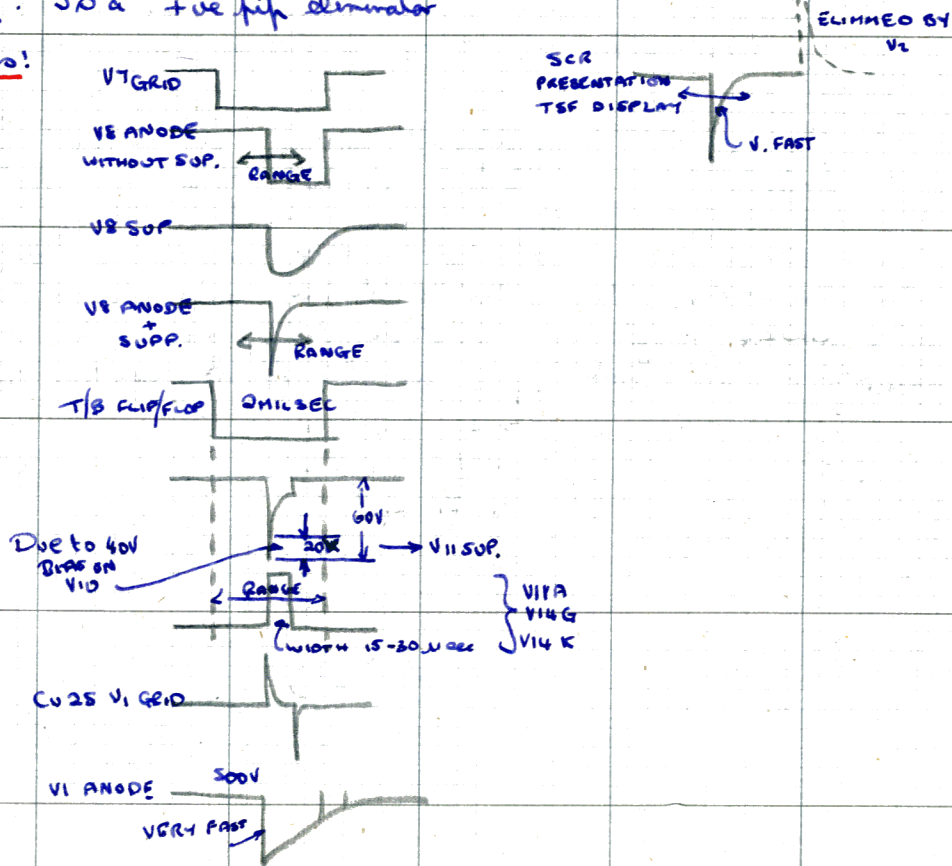 +ve pip eliminator
o!
ELIMMED BY
V2
V7 GRID
SCR
PRESENTATION
TSF DISPLAY
V. FAST
V8 ANODE
WITHOUT SUP.
RANGE
V8 SUP
V8 ANODE
+
SUPP.
RANGE
T/B FLIP/FLOP
2MILSEC
60V
Due to 40V
BIAS ON
V10
20V
V11 SUP.
RANGE
V11A
V14G
V14K
WIDTH 15-30 μsec
CU 25 V1 GRID
500V
V1 ANODE
VERY FAST